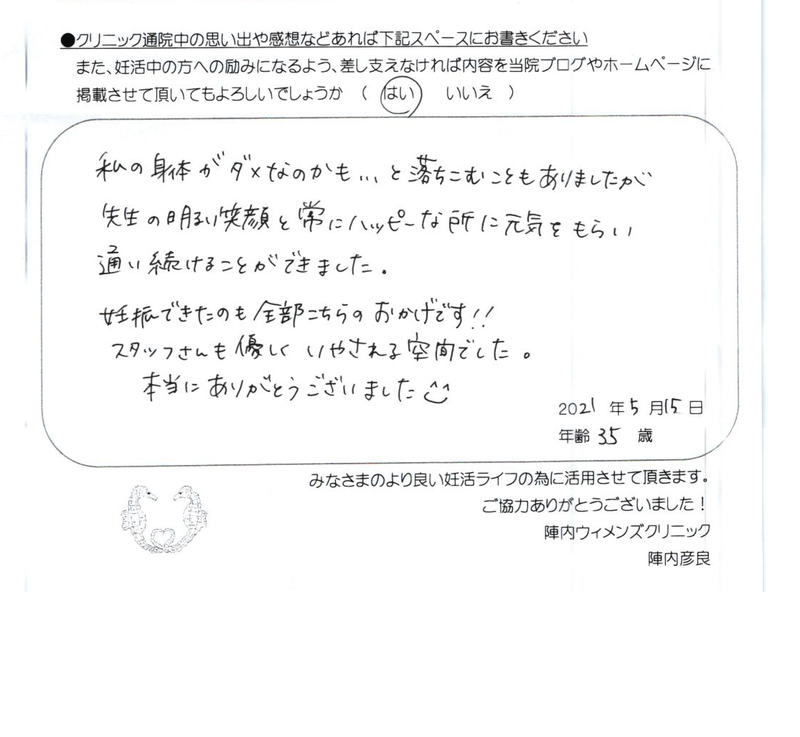 ●クリニック通院中の思い出や感想などあれば下記スペースにお書きください
また、妊活中の方への励みになるよう、差し支えなければ内容を当院ブログやホームページに
掲載させて頂いてもよろしいでしょうか （ はい　いいえ ）
私の身体がダメなのかも...と落ちこむこともありましたが
先生の明るい笑顔と常にハッピーな所に元気をもらい
通い続けることができました。
妊娠できたのも全部こちらのおかげです!!
スタッフさんも優しくいやされる空間でした。
本当にありがとうございました
2021 年 5 月 15 日
年齢 35 歳
みなさまのより良い妊活ライフの為に活用させて頂きます。
ご協力ありがとうございました！
陣内ウィメンズクリニック
陣内彦良